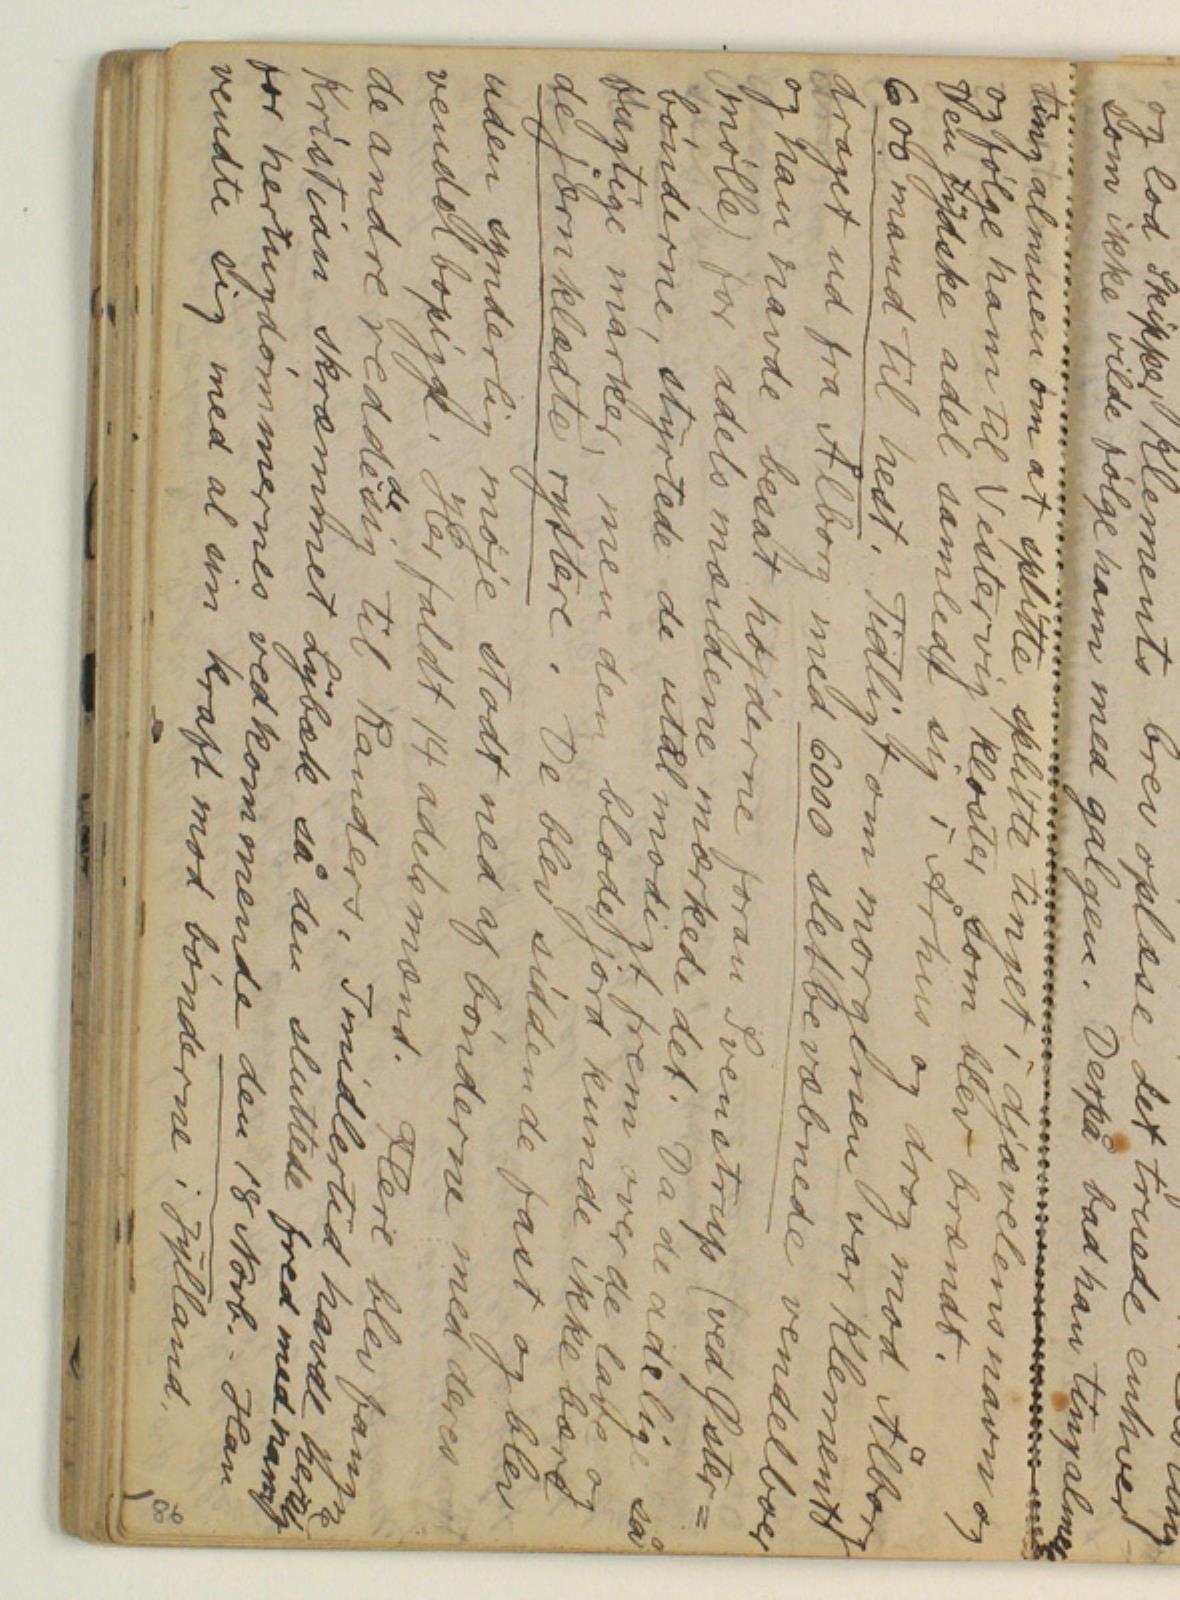 og lod Skipper Klements brev oplæse det truede enhver
som ikke vilde følge ham med galgen. Derpå bad han tingalmue
ting almuen om at splitte splitte tinget i djævelens navn og
og følge ham til Vestervig kloster som blev brændt.
Den jydske adel samledt sig i Århus og drog mod Ålborg
600 mand til hest. Tidligt om morgenen var Klement
draget ud fra Ålborg med 6000 slet bevæbnede vendelboer
og han havde besat højderne foran Svenstrup (ved Øster=
mølle) før adelsmændene mærkede det. Da de adelige så
bønderne, styrtede de utålmodigt frem over de lave og
fugtige marker, men den blode jord kunde ikke bære
de jærnklædte ryttere. De blev siddende fast og blev
uden synderlig møje stødt ned af bønderne med deres
vendelbopigge. Her faldt 14 adelsmænd. Flere blev fangne
de andre reddede sig til Randers. Imidlertid havde hertug
Kristian skræmmet Lybæk så den sluttede fred med ham
for hertugdømmernes vedkommende den 18 Novb. - Han
vendte sig med al sin kraft mod bønderne i Jylland.
98